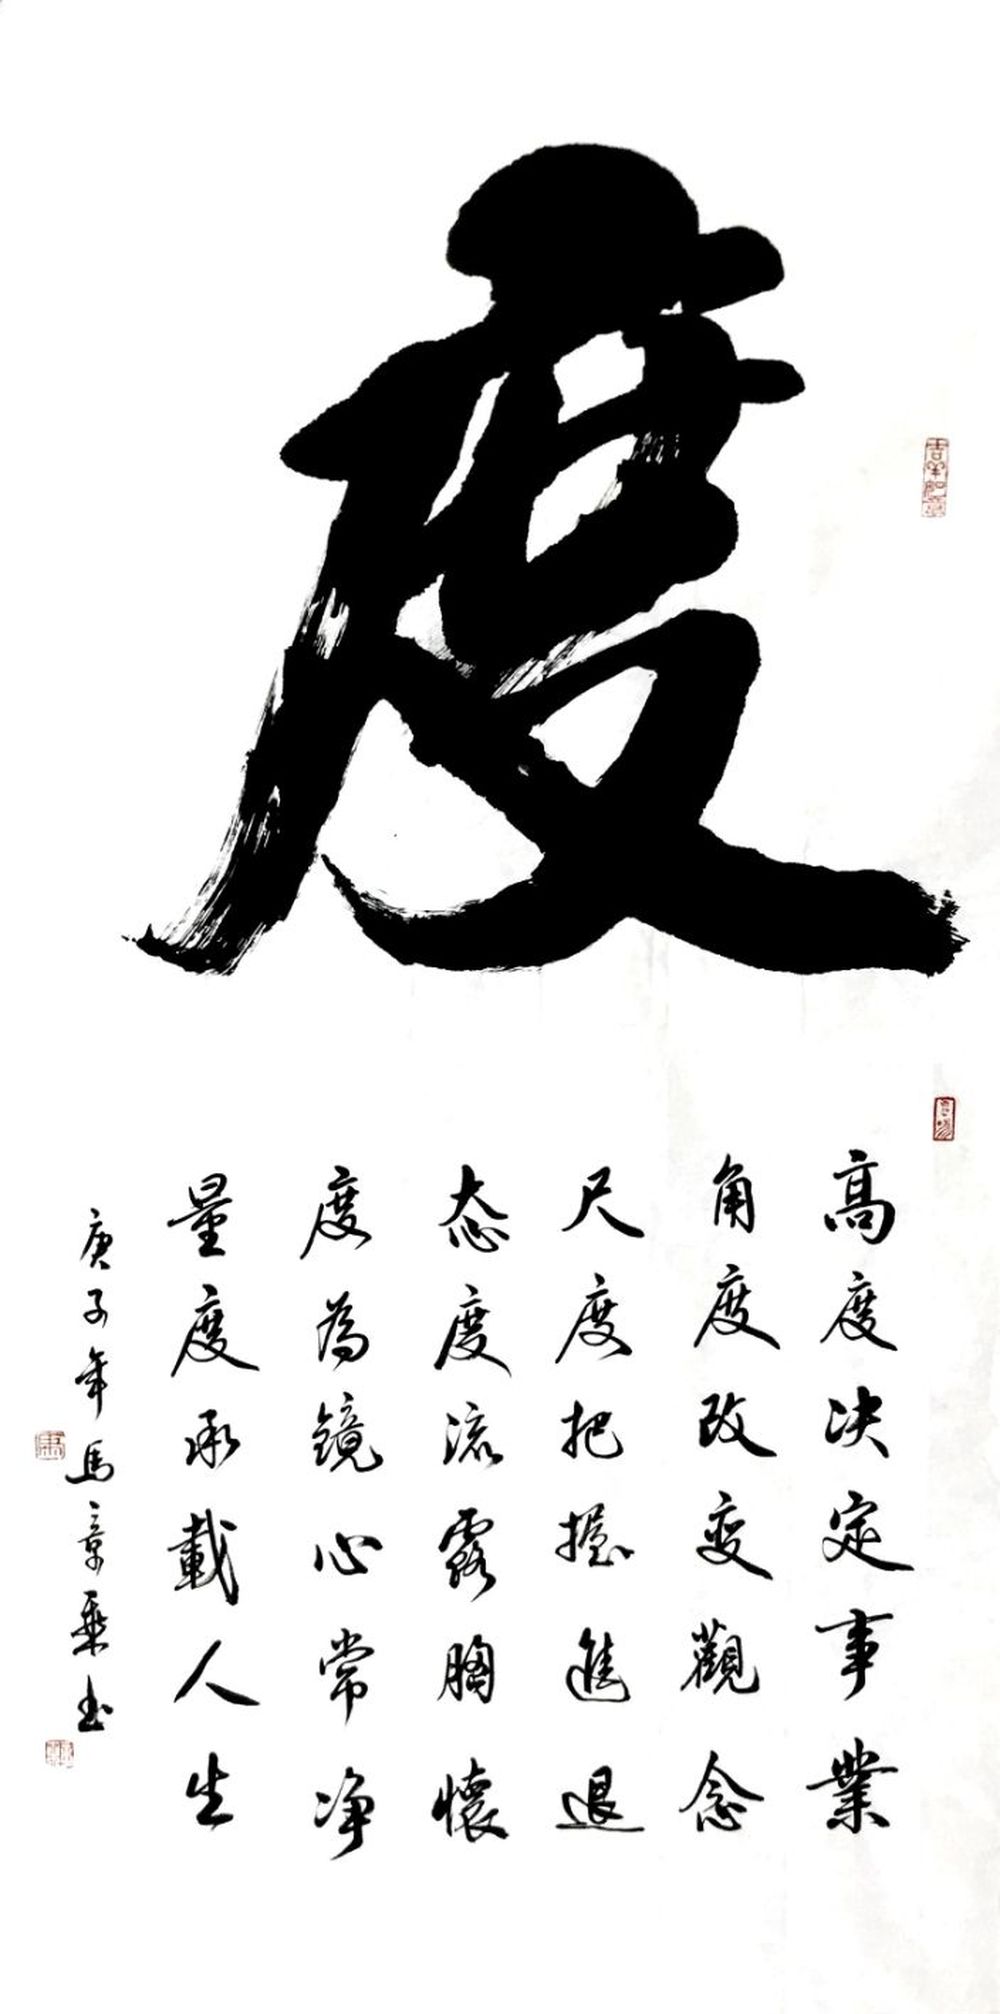 度
高度决定事業
角度改变觀念
尺度把握進退
态度流露胸懷
度為鏡心常净
量度承載人生
庚子年馬章乘书
吉羊如意